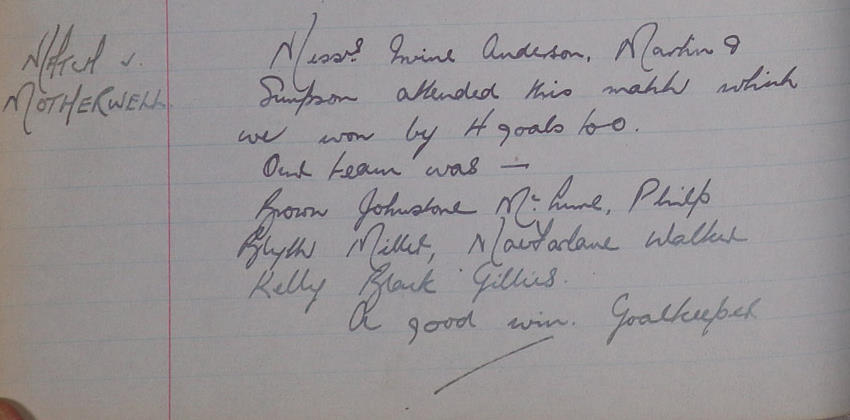 MATCH v.
MOTHERWELL.
Messrs Irvine Anderson, Martin &
Simpson attended this match which
we won by 4 goals to 0.
Our team was —
Brown Johnstone McLure, Philp
Blyth Miller, MacFarlane Walker
Kelly Black Gillies.
A good win. Goalkeeper